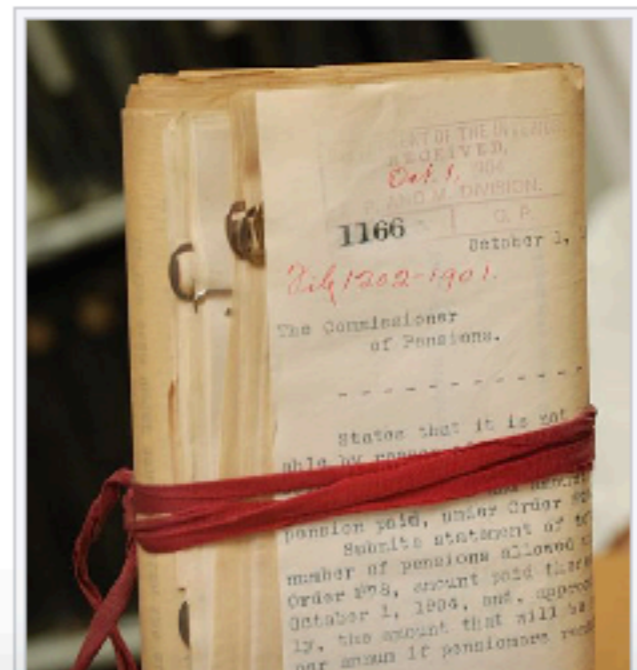 OF THE INTERIOR
RECEIVED,
Oct. 1, 1904
P. AND M. DIVISION.
1166
O. P.
October 1,
File 1202-1901.
The Commissioner
of Pensions.
States that it is not
able by reason of
pension paid, under Order
Submits statement of
number of pensions allowed
Order #78, amount paid
October 1, 1904, and,
ly, the amount that will be
per annum if pensioners